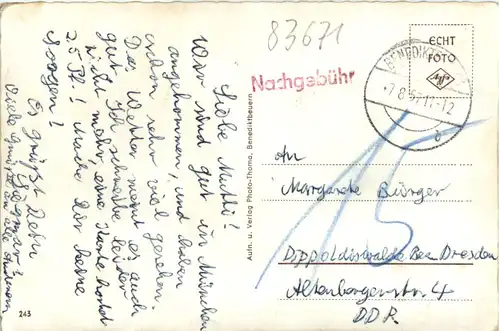 83671
Liebe Mutti!
Wir sind gut in München
angekommen, und haben
schon sehr viel gesehen.
Das Wetter meint es auch
gut. Ich schreibe leider
nicht mehr, eine Karte kostet
25 Pf! Mache Dir keine
Sorgen!
Es grüsst Dein
Sigmar!
Viele Grüße an alle anderen
243
Aufn. u. Verlag Photo-Thoma, Benediktbeuern
Nachgebühr
ECHT
FOTO
BENEDIKTB
An
Margarete Bürger
Dippoldiswalde Bez. Dresden
Altenbergerstr. 4
DDR.
15